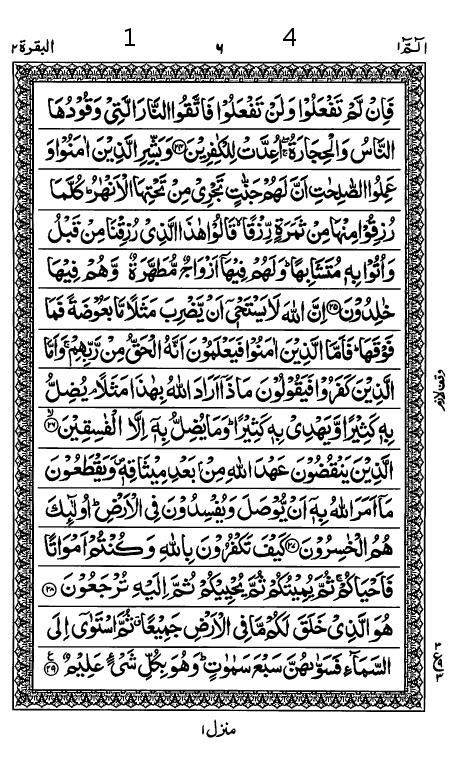 البقرة ٢ 1 ٦ 4 الٓمّٓ ١
فَاِنْ لَّمْ تَفْعَلُوْا وَلَنْ تَفْعَلُوْا فَاتَّقُوا النَّارَ الَّتِیْ وَقُوْدُهَا
النَّاسُ وَالْحِجَارَةُ ۖۚ اُعِدَّتْ لِلْكٰفِرِیْنَ ﴿٢٤﴾ وَبَشِّرِ الَّذِیْنَ اٰمَنُوْا وَ
عَمِلُوا الصّٰلِحٰتِ اَنَّ لَهُمْ جَنّٰتٍ تَجْرِیْ مِنْ تَحْتِهَا الْاَنْهٰرُ ؕ كُلَّمَا
رُزِقُوْا مِنْهَا مِنْ ثَمَرَةٍ رِّزْقًا ۙ قَالُوْا هٰذَا الَّذِیْ رُزِقْنَا مِنْ قَبْلُ
وَاُتُوْا بِهٖ مُتَشَابِهًا ؕ وَلَهُمْ فِیْهَاۤ اَزْوَاجٌ مُّطَهَّرَةٌ ۙ وَّهُمْ فِیْهَا
خٰلِدُوْنَ ﴿٢٥﴾ اِنَّ اللّٰهَ لَا یَسْتَحْیٖۤ اَنْ یَّضْرِبَ مَثَلًا مَّا بَعُوْضَةً فَمَا
فَوْقَهَا ؕ فَاَمَّا الَّذِیْنَ اٰمَنُوْا فَیَعْلَمُوْنَ اَنَّهُ الْحَقُّ مِنْ رَّبِّهِمْ ۚ وَاَمَّا
الَّذِیْنَ كَفَرُوْا فَیَقُوْلُوْنَ مَاذَاۤ اَرَادَ اللّٰهُ بِهٰذَا مَثَلًا ۘ یُضِلُّ
بِهٖ كَثِیْرًا ۙ وَّیَهْدِیْ بِهٖ كَثِیْرًا ؕ وَمَا یُضِلُّ بِهٖۤ اِلَّا الْفٰسِقِیْنَ ۙ﴿٢٦﴾
الَّذِیْنَ یَنْقُضُوْنَ عَهْدَ اللّٰهِ مِنْۢ بَعْدِ مِیْثَاقِهٖ ۪ وَیَقْطَعُوْنَ
مَاۤ اَمَرَ اللّٰهُ بِهٖۤ اَنْ یُّوْصَلَ وَیُفْسِدُوْنَ فِی الْاَرْضِ ؕ اُولٰٓئِكَ
هُمُ الْخٰسِرُوْنَ ﴿٢٧﴾ كَیْفَ تَكْفُرُوْنَ بِاللّٰهِ وَكُنْتُمْ اَمْوَاتًا
فَاَحْیَاكُمْ ۚ ثُمَّ یُمِیْتُكُمْ ثُمَّ یُحْیِیْكُمْ ثُمَّ اِلَیْهِ تُرْجَعُوْنَ ﴿٢٨﴾
هُوَ الَّذِیْ خَلَقَ لَكُمْ مَّا فِی الْاَرْضِ جَمِیْعًا ۗ ثُمَّ اسْتَوٰۤی اِلَی
السَّمَآءِ فَسَوّٰىهُنَّ سَبْعَ سَمٰوٰتٍ ؕ وَهُوَ بِكُلِّ شَیْءٍ عَلِیْمٌ ﴿٢٩﴾
منزل ١